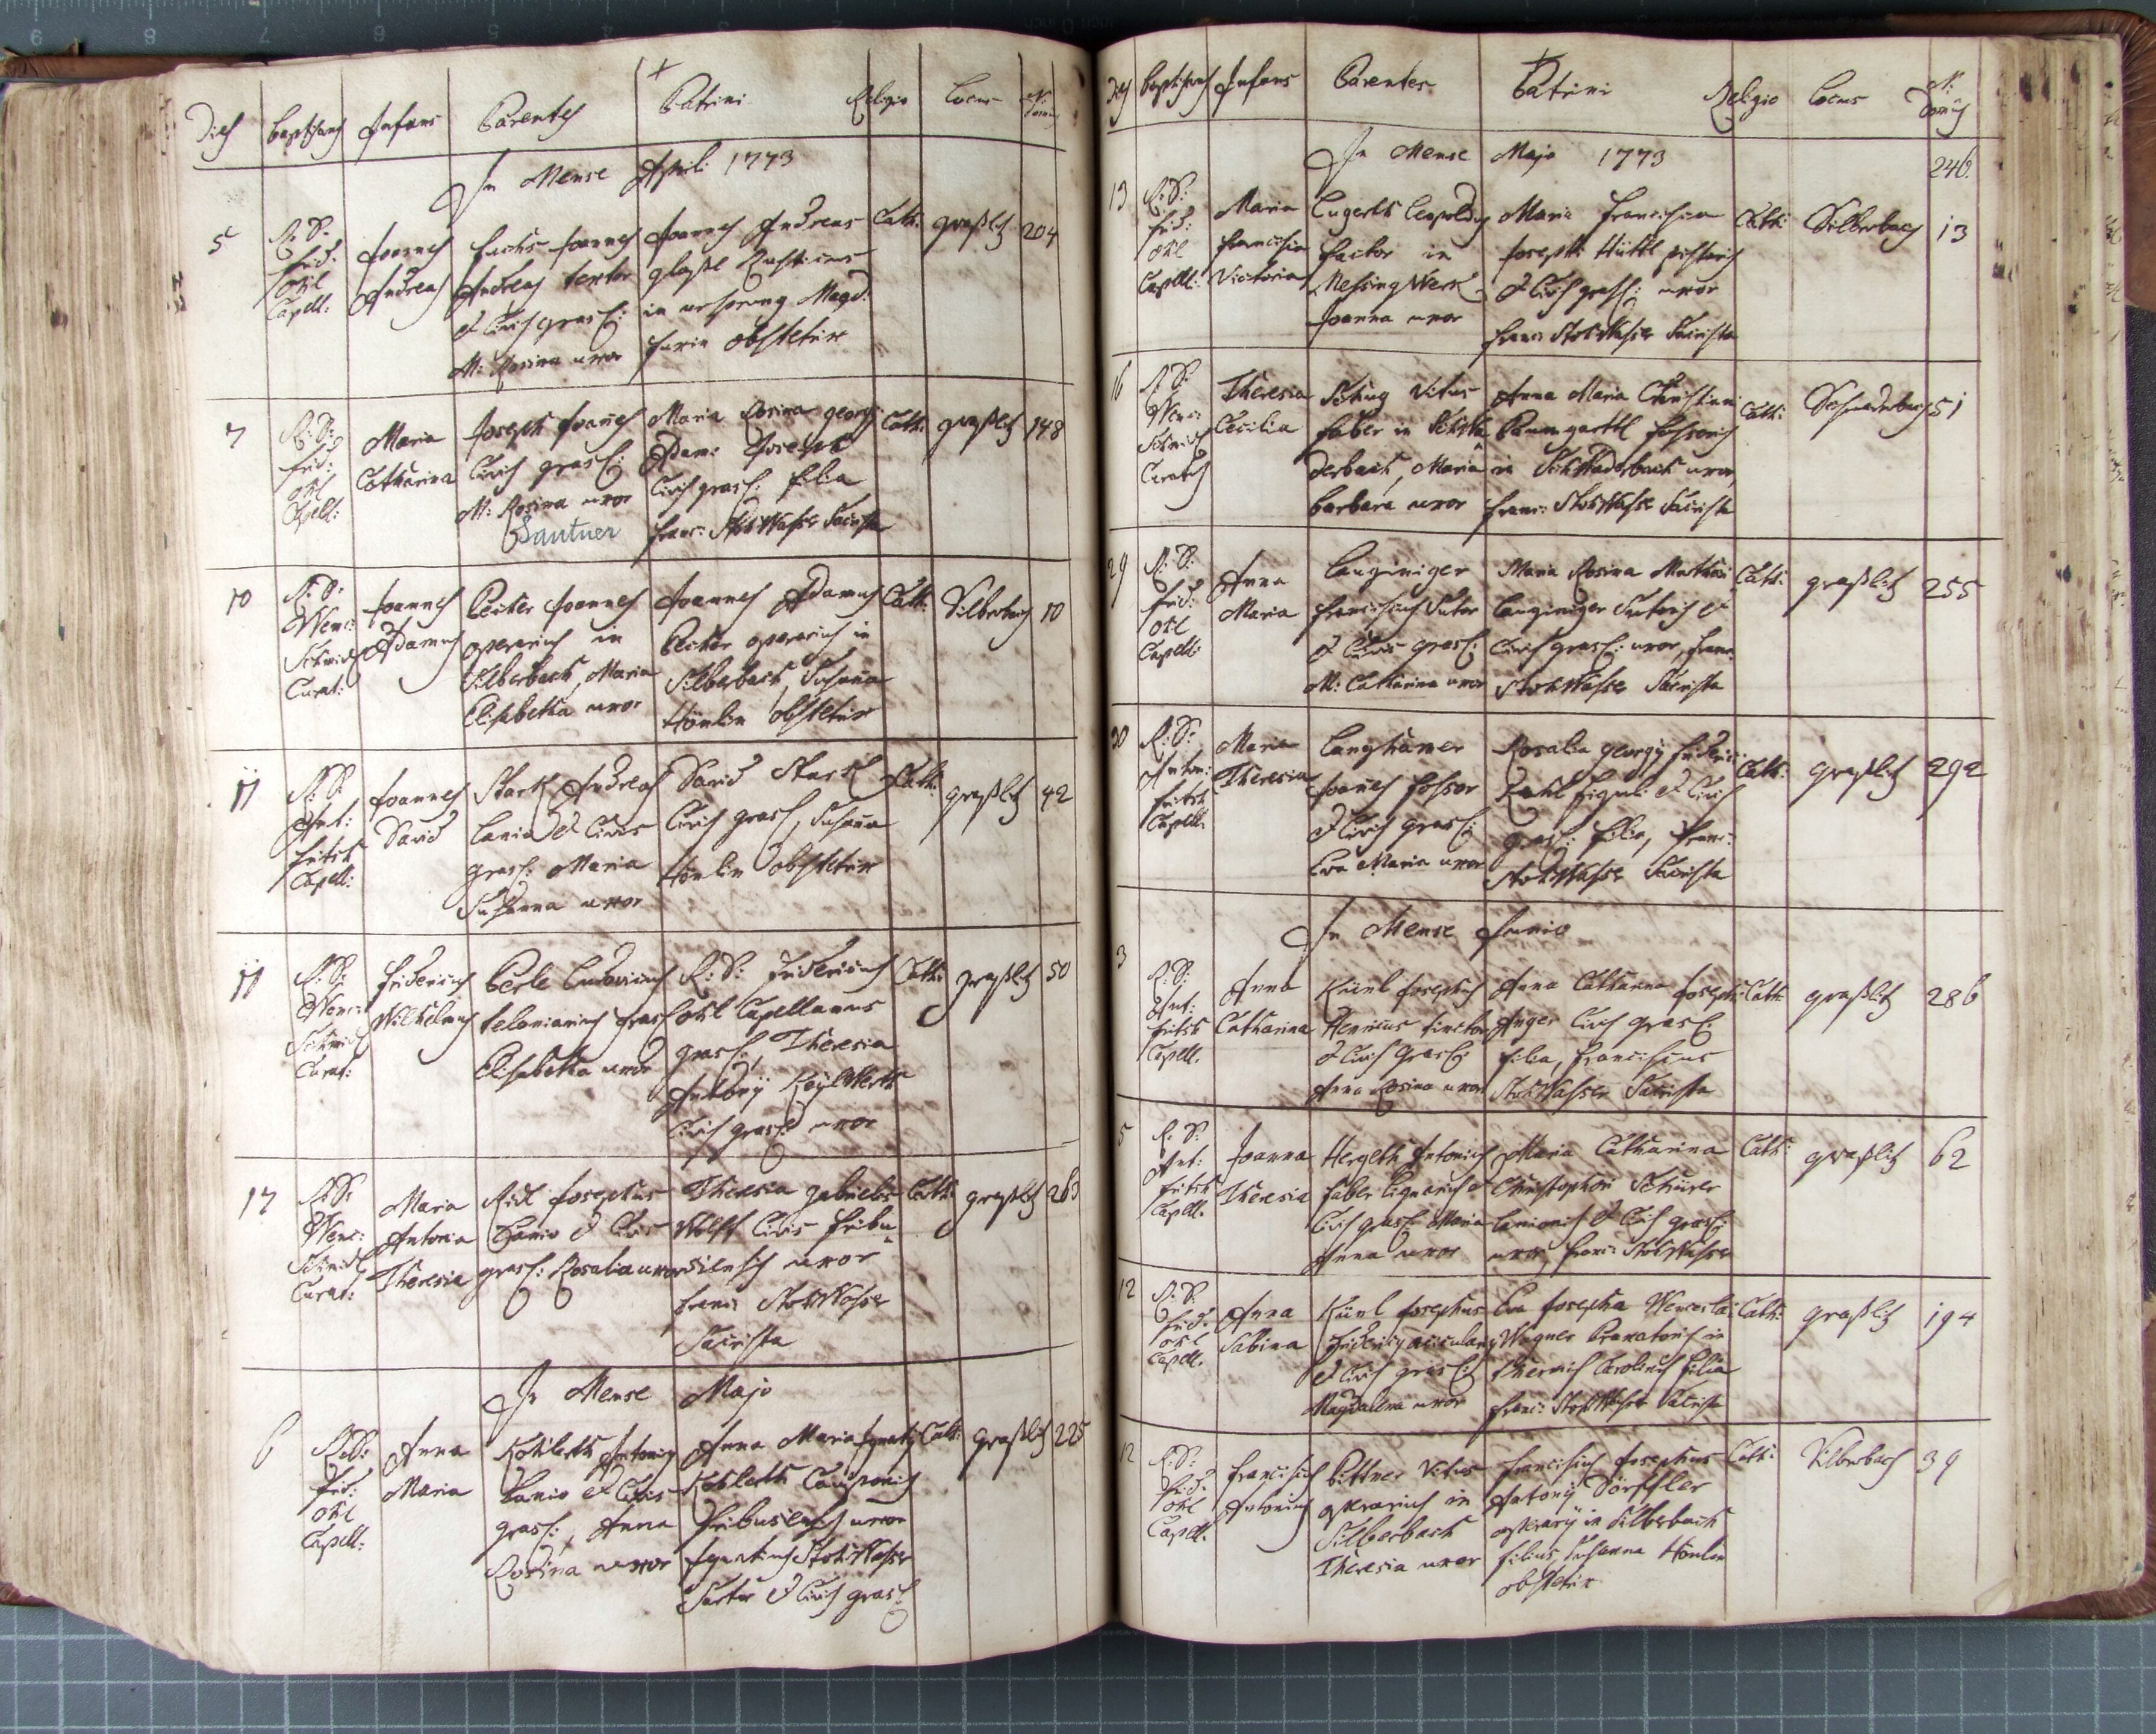 Dies Baptisans Infans Parentes Patrini Religio Locus Nr. Domus
In Mense Aprili 1773
5
R: D:
Frid:
Ohl
Capell:
Joannes
Andreas
Fuchs Joannes
Andreas textor
& Civis grasl:
M: Rosina uxor
Joannes Andreas
glaßl Rusticus
in ursprung Magd:
obstetrix
Cath:
graßlitz
204
7
R: D:
Frid:
Ohl
Capell:
Maria
Catharina
Joseph Joannes
Civis grasl:
M: Rosina uxor
Bautner
Maria Rosina georg
Adam:
Civis grasl: filia
Franc: Stokwasser Sacrista
Cath:
graßlitz
148
10
R: D:
Wenc:
Schmidl
Curat:
Joannes
Adamus
Peuter Joannes
operarius in
Silberbach, Maria
Elisabetha uxor
Joannes Adamus
Peuter operarius in
Silberbach, Susanna
Hönlin obstetrix
Cath:
Silberbach
10
11
R: D:
Ant:
Fritsch
Capell:
Joannes
David
Stark Andreas
Lanio & Civis
grasl: Maria
Susanna uxor
David Stark
Civis grasl, Susanna
Hönlin obstetrix
Cath:
graßlitz
42
11
R: D:
Wenc:
Schmidl
Curat:
Fridericus
Wilhelmus
Perle Ludovicus
telonarius grasl
Elisabetha uxor
R: D: Fridericus
Ohl Capellanus
grasl: Theresia
Antonij
Civis grasl: uxor
Cath:
graßlitz
50
17
R: D:
Wenc:
Schmidl
Curat:
Maria
Antonia
Theresia
Riedl Josephus
Lanio & Civis
grasl: Rosalia uxor
Theresia gabrielis
Wolff Civis Fribu
siensis uxor
Franc: Stokwasser
Sacrista
Cath:
graßlitz
263
In Mense Majo
6
R: D:
Frid:
Ohl
Capell:
Anna
Maria
Antonius
Lanio & Civis
grasl:, Anna
Rosina uxor
Anna Maria Ignatij
Cauponis
Fribusensis uxor
Ignatius Stokwasser
Sartor & Civis grasl
Cath:
graßlitz
225
Dies Baptisans Infans Parentes Patrini Religio Locus Nr: Domus
In Mense Majo 1773
246.
13
R: D:
Frid:
Ohl
Capell:
Maria
Francisca
Victoria
Lugerts Leopoldus
Factor in
Messing Werk
Joanna uxor
Maria Francisca
Josephi Hüttl pistoris
& Civis grasl: uxor
Franc: Stokwasser Sacrista
Cath:
Silberbach
13
16
R: D:
Wenc:
Schmidl
Curatus
Theresia
Cecilia
Vitus
Faber in Schwa
derbach, Maria
Barbara uxor
Anna Maria Christiani
Baumgarttl fossoris
in Schwaderbach uxor,
Franc: Stokwasser Sacrista
Cath:
Schwaderbach
51
29
R: D:
Frid:
Ohl
Capell:
Anna
Maria
Langiniger
Franciscus Sutor
& Civis grasl:
M: Catharina uxor
Maria Rosina Mathaei
Langiniger Sutoris &
Civis grasl: uxor, Franc:
Stokwasser Sacrista
Cath:
graßlitz
255
30
R: D:
Anton:
Fritsch
Capell:
Maria
Theresia
Langhamer
Joannes fossor
& Civis grasl:
Eva Maria uxor
Rosalia georgij Friderici
figuli & Civis
grasl: filia, Franc:
Stokwasser Sacrista
Cath:
graßlitz
292
In Mense Junio
3
R: D:
Ant:
Fritsch
Capell:
Anna
Catharina
Künl Josephus
Henricus tinctor
& Civis grasl:
Anna Rosina uxor
Anna Catharina Josephi
Anger Civis grasl:
filia, Franciscus
Stokwasser Sacrista
Cath:
graßlitz
286
5
R: D:
Ant:
Fritsch
Capell:
Joanna
Theresia
Hergeth Antonius
faber lignarius &
Civis grasl: Maria
Anna uxor
Maria Catharina
Christophori Schürer
Lanionis & Civis grasl:
uxor, Franc: Stokwasser
Cath:
graßlitz
62
12
R: D:
Frid:
Ohl
Capell:
Anna
Sabina
Künl Josephus
Fridericus
& Civis grasl:
Magdalena uxor
Eva Josepha Wenceslai
Wagner in
thermis Carolinis filia
Franc: Stokwasser Sacrista
Cath:
graßlitz
194
12
R: D:
Frid:
Ohl
Capell:
Franciscus
Antonius
Bittner Vitus
operarius in
Silberbach
Theresia uxor
Franciscus Josephus
Antonij Dörffler
operarij in Silberbach
filius, Susanna Hönlin
obstetrix
Cath:
Silberbach
39